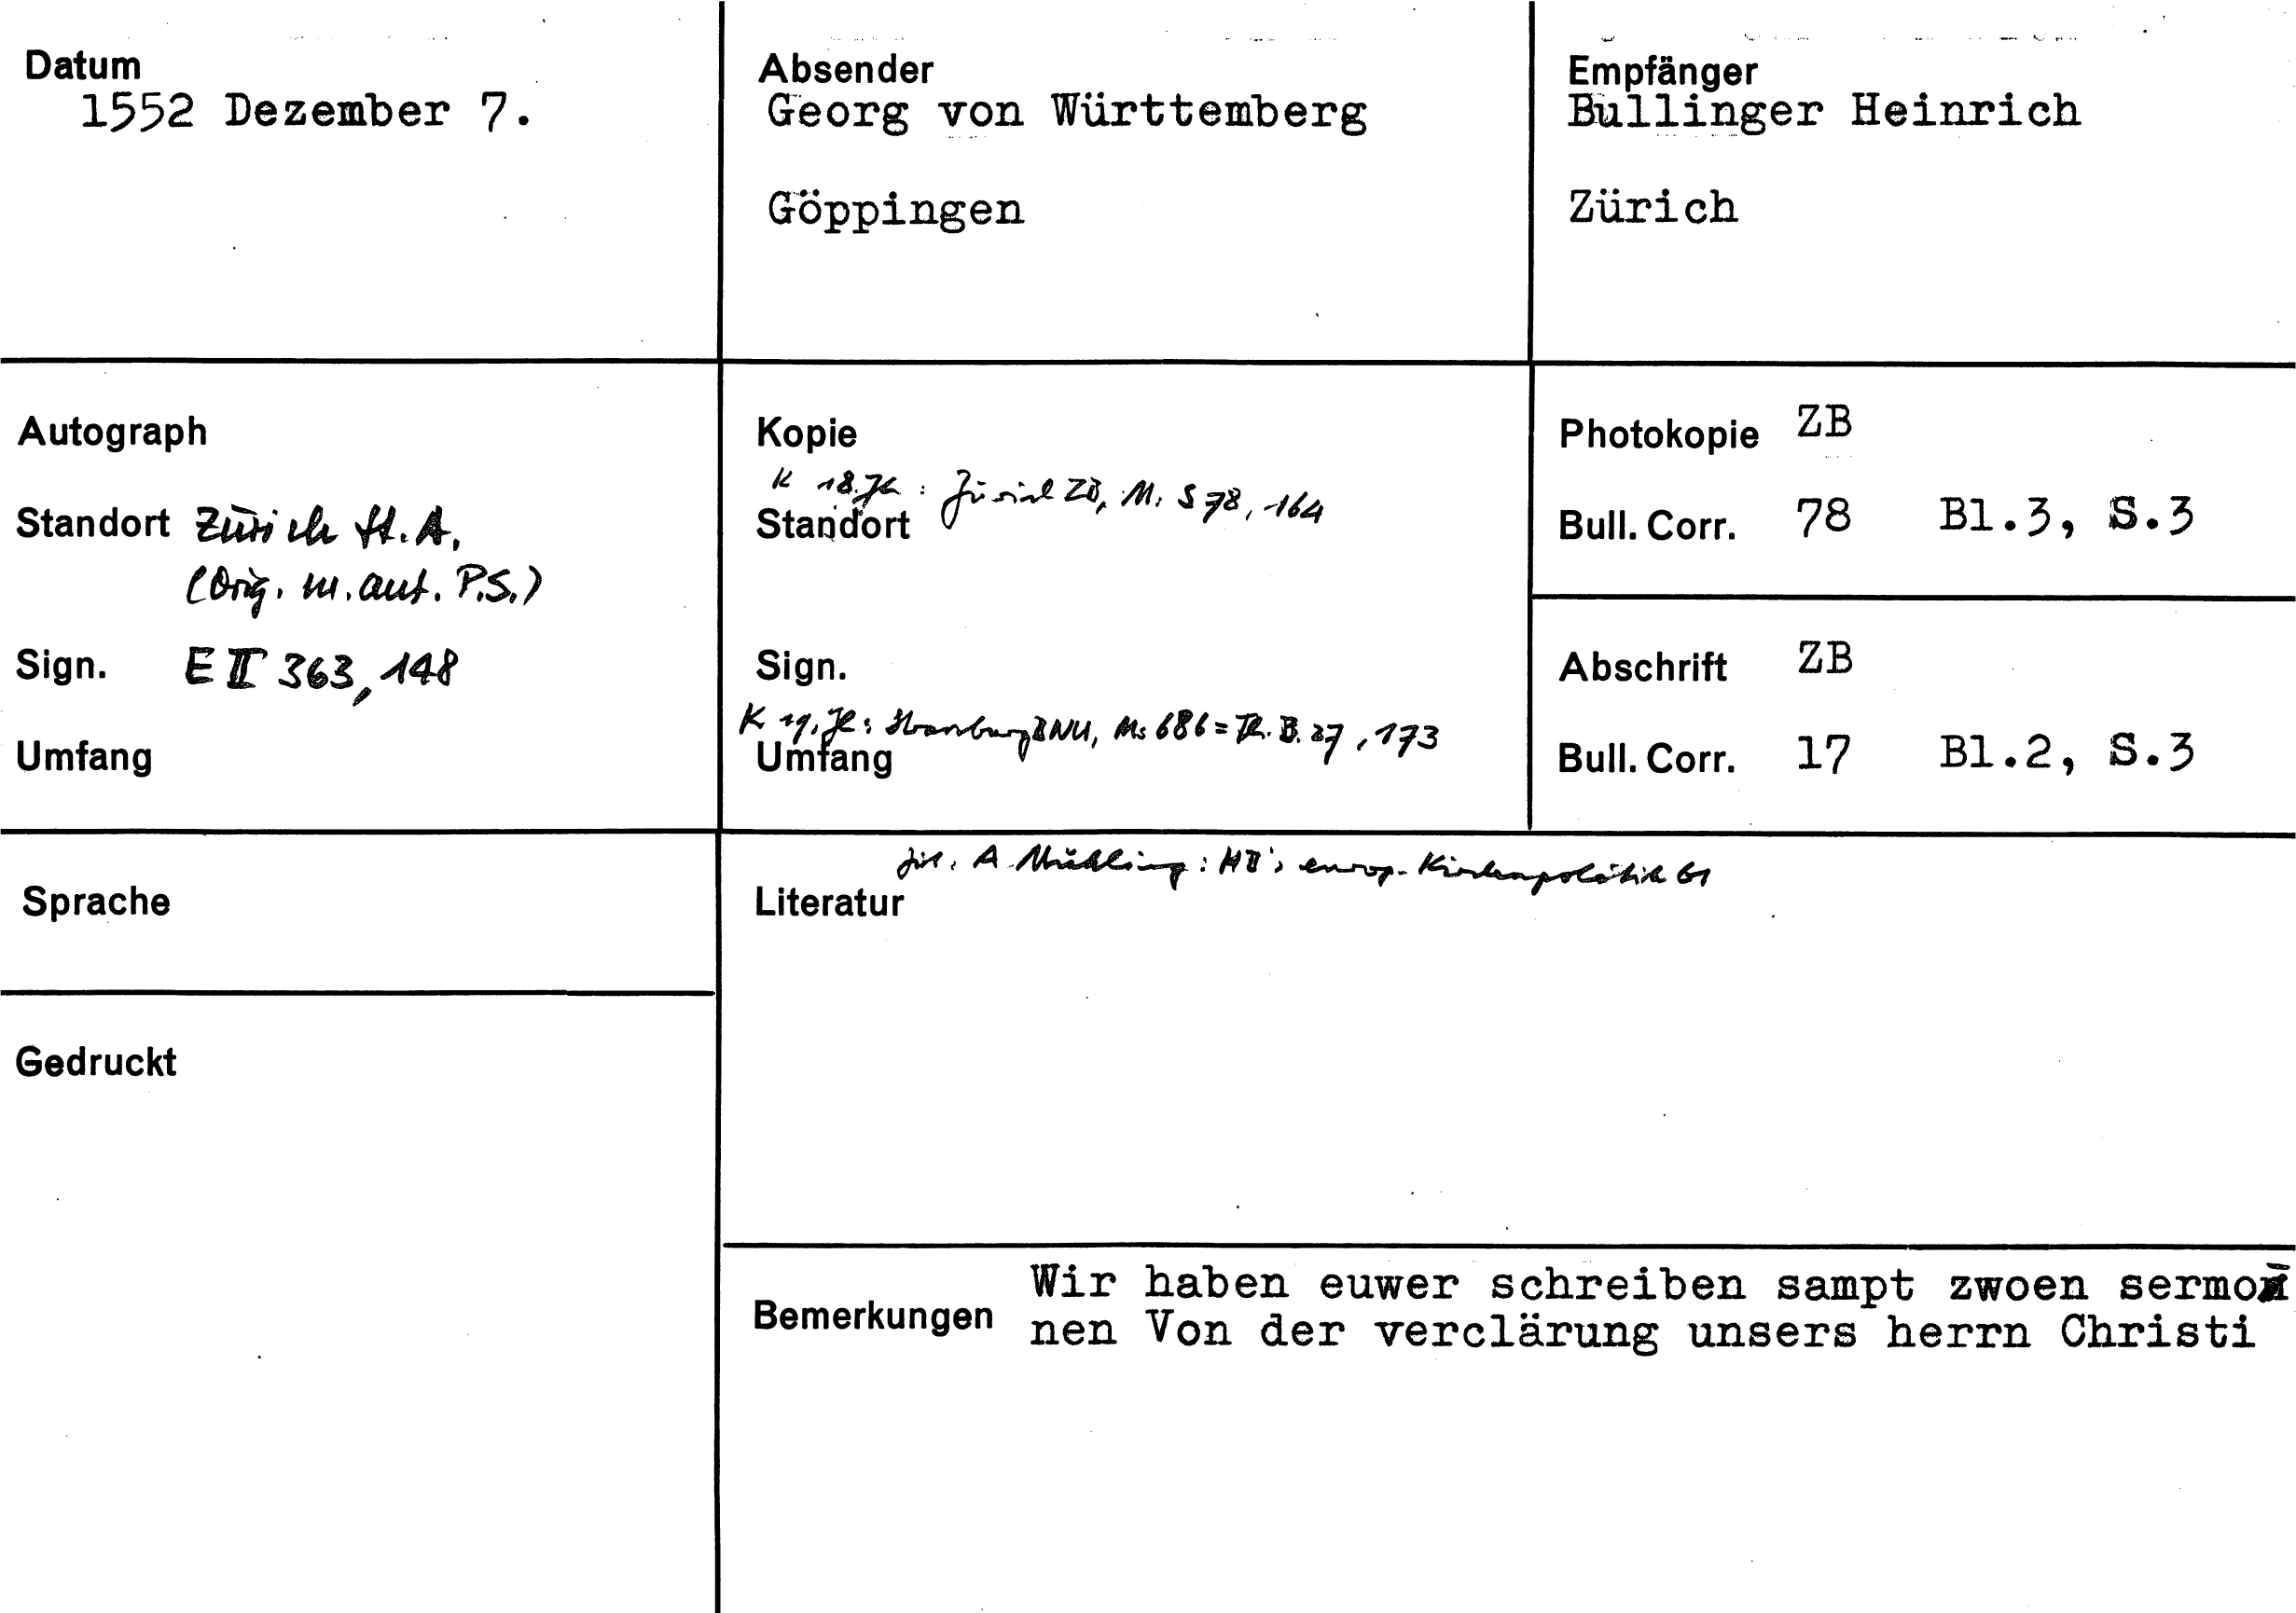 Datum
1552 Dezember 7.
Absender
Georg von Württemberg
Göppingen
Empfänger
Bullinger Heinrich
Zürich
Autograph
Standort Zürich St.A.
(Orig. m. aut. P.S.)
Sign. E II 363, 148
Umfang
Kopie
K 18. Jh.: Zürich ZB, Ms S 78, 164
Standort
Sign.
K 19. Jh: Strassburg BNU, Ms 686 = Th. B. 27, 173
Umfang
Photokopie ZB
Bull. Corr. 78 Bl.3, S.3
Abschrift ZB
Bull. Corr. 17 Bl.2, S.3
Sprache
Gedruckt
zit. A. Mühling: HB's europ. Kirchenpolitik 61
Literatur
Bemerkungen
Wir haben euwer schreiben sampt zwoen sermon
nen Von der verclärung unsers herrn Christi